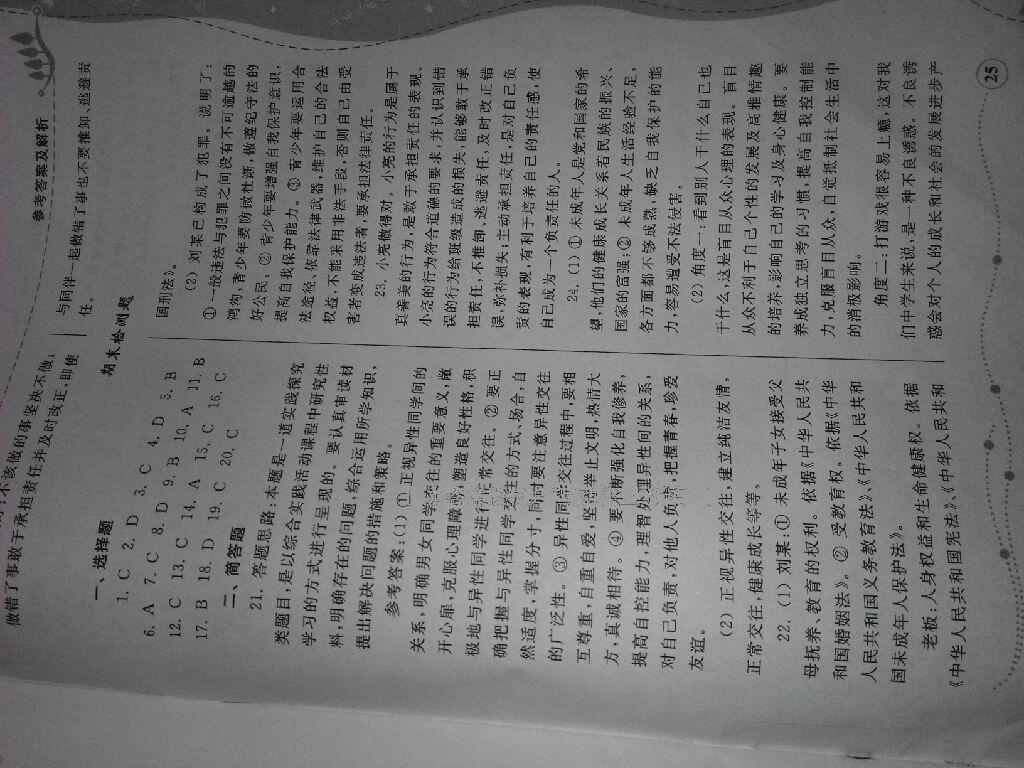 参考答案及解析
做错了事敢于承担责任并及时改正,即使
与同伴一起做错了事也不要推卸、逃避责
任。
期末检测题
一、选择题
1. C 2. D 3. C 4. D 5. B
6. A 7. C 8. D 9. B 10. A 11. B
12. C 13. C 14. A 15. C 16. C
17. B 18. D 19. C 20. C
二、简答题
21. 答题思路:本题是一道实践探究
类题目,是以综合实践活动课程中研究性
学习的方式进行呈现的。要认真审读材
料,明确存在的问题,综合运用所学知识,
提出解决问题的措施和策略。
参考答案:(1)① 正视异性同学间的
关系,明确男女同学交往的重要意义,敞
开心扉,克服心理障碍,塑造良好性格,积
极地与异性同学进行正常交往。② 要正
确把握与异性同学交往的方式、场合,自
然适度,掌握分寸,同时要注意异性交往
的广泛性。③ 异性同学交往过程中,要相
互尊重,自重自爱,坚持举止文明,热情大
方,真诚相待。④ 要不断强化自我修养,
提高自控能力,理智处理异性间的关系,
对自己负责,对他人负责,把握青春,珍爱
友谊。
(2)正视异性交往,建立纯洁友情,
正常交往,健康成长等等。
22. (1)刘某:① 未成年子女接受父
母抚养、教育的权利。依据《中华人民共
和国婚姻法》。② 受教育权。依据《中华
人民共和国义务教育法》、《中华人民共和
国未成年人保护法》。
老板:人身权益和生命健康权。依据
《中华人民共和国宪法》、《中华人民共和
国刑法》。
(2)刘某已构成了犯罪。说明了:
① 一般违法与犯罪之间没有不可逾越的
鸿沟,青少年要防微杜渐,做遵纪守法的
好公民。② 青少年要增强自我保护意识,
提高自我保护能力。③ 青少年要运用合
法途径,依靠法律武器,维护自己的合法
权益,不能采用非法手段,否则自己由受
害者变成违法者,要承担法律责任。
23. 小亮做得对。小亮的行为是属于
真善美的行为,是敢于承担责任的表现。
小亮的行为符合道德的要求,并认识到错
误的行为给班级造成的损失,能够敢于承
担责任,不推卸、逃避责任,及时改正错
误,弥补损失;主动承担责任,是对自己负
责的表现,有利于培养自己的责任感,使
自己成为一个负责任的人。
24. (1)① 未成年人是党和国家的希
望,他们的健康成长关系着民族的振兴、
国家的富强;② 未成年人生活经验不足,
各方面都不够成熟,缺乏自我保护的能
力,容易遭受不法侵害。
(2)角度一:看到别人干什么自己也
干什么,这是盲目从众心理的表现。盲目
从众不利于自己个性的发展及高雅情趣
的培养,影响自己的学习及身心健康。要
养成独立思考的习惯,提高自我控制能
力,克服盲目从众,自觉抵制社会生活中
的消极影响。
角度二:打游戏很容易上瘾,这对我
们中学生来说,是一种不良诱惑。不良诱
惑会对个人的成长和社会的发展进步产
25